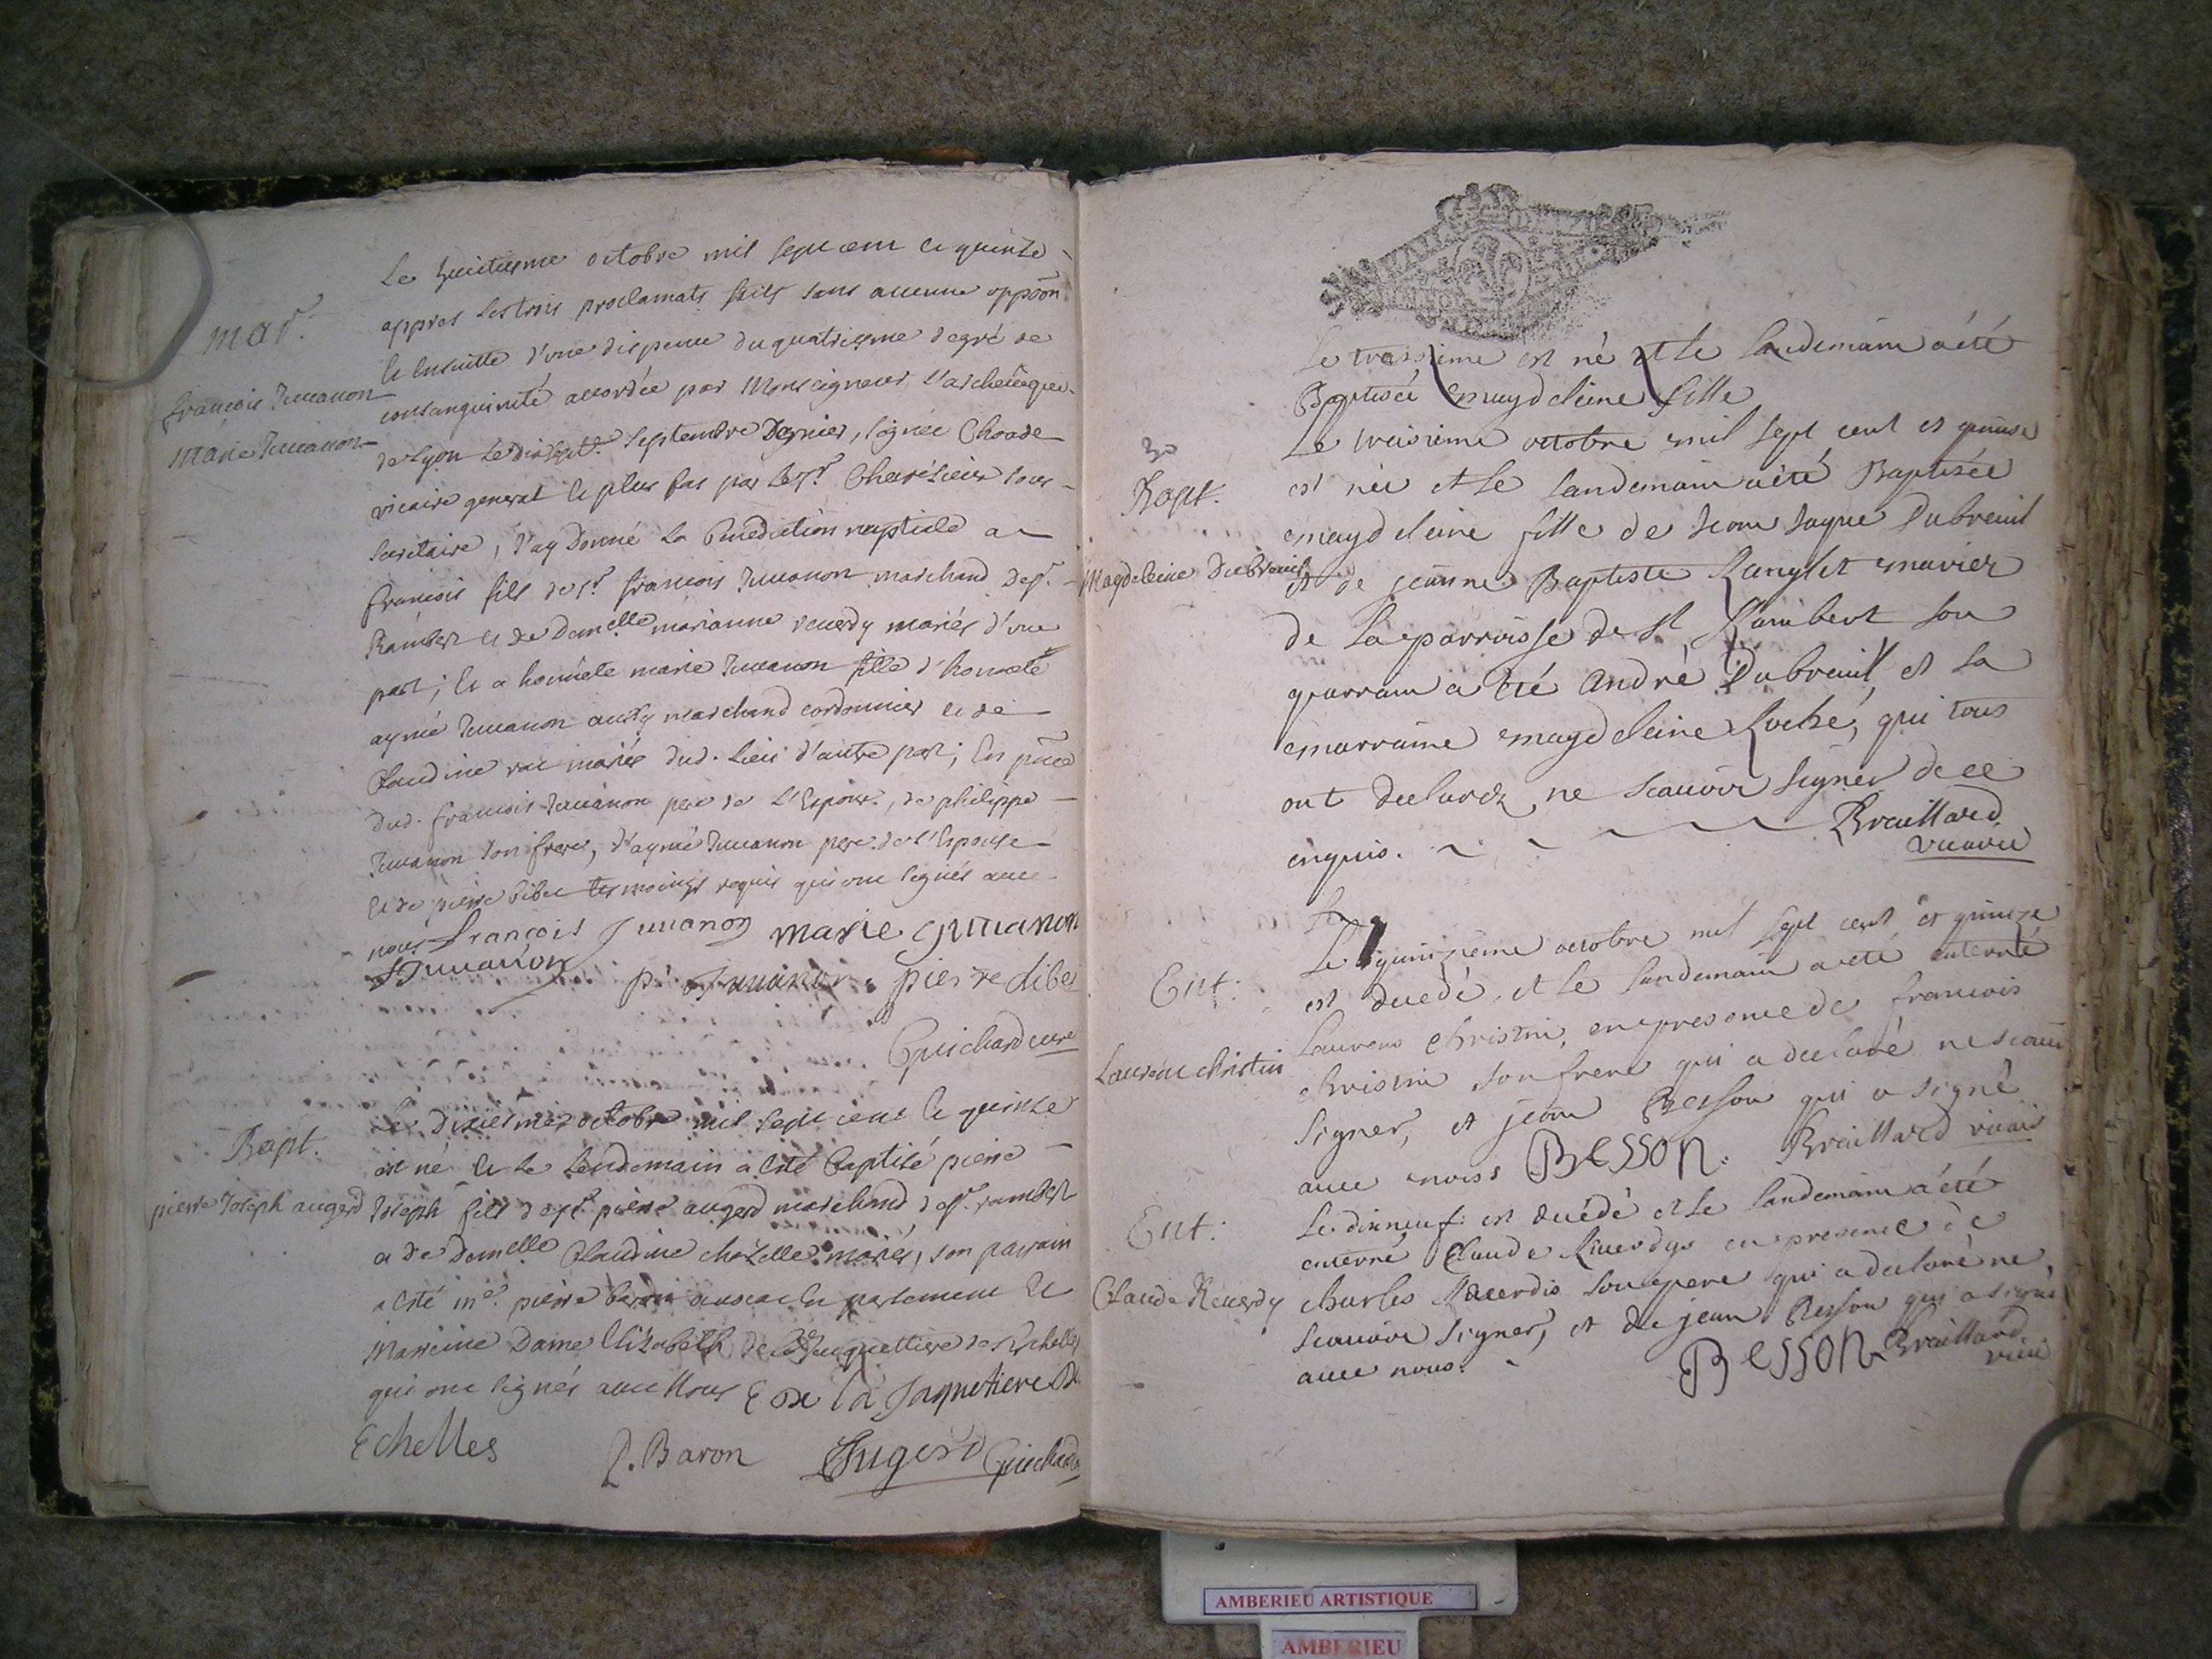 Le huictiesme octobre mil sept cent et quinze
mar.
appres les trois proclamats faits sans aucune oppõon
et ensuitte d'une dispense du quatriesme degré de
françois Juuanon
consanguinité accordée par Monseigneur l'archeuêque
Marie Juuanon
de Lyon Le dix sept.e septembre Dernier, signée
vicaire general et plus bas par le sr. sous
secretaire, J'ay Donné La Benediction nuptiale a
françois fils de sr. françois Juuanon marchand de st.
Rambert et de Demelle marianne reuerdy mariés d'une
part; Et a honnete marie Juuanon fille d'honnete
aymé Juuanon aussy marchand cordonnier et de
Claudine mariés dud. Lieu d'autre part; En pñce
dud. francois Juuanon pere de L'Espoux, de philippe
Juuanon son frere, d'aymé Juuanon pere de l'Espouse
Et de pierre tesmoings requis qui ont signés auec
nous François Juuanon marie Juuanon
Juuanon p. Juuanon pierre
Guichard curé
Le dixiesme octobre mil sept cent et quinze
Bapt.
est né et le Lendemain a esté Baptisé pierre
pierre Joseph augerd
Joseph fils de sr. pierre augerd marchand de st. rambert
et de Demelle Claudine mariés, son parrain
a esté me. pierre baron auocat en parlement et
Marreine Dame Elizabeth de La Jaquettiere des Echelles
qui ont signés auec Nous E De la Jaquetiere De
Echelles P. Baron Augerd Guichard
Le troisième est né et le landemain a été
Baptisée magdeleine fille
Le troisième octobre mil sept cent et quinse
30
est née et le landemain a été Baptisée
Bapt.
magdeleine fille de Jean Jaque Dubreuil
Magdeleine Dubreuil
et de jeanne Baptiste mariez
de La parroisse de st Rambert son
parrain a été André Dubreuil et la
marraine magdeleine qui tous
ont declarez ne scauoir signer de ce
enquis. Brailliard
vicaire
Le
Le quinzième octobre mil sept cent et quinze
Ent:
est decedé, et le landemain a été enterré
Laurens Christin, en presence de francois
Laurent christin
christin son frere qui a declaré ne scauoir
signer, et jean Besson qui a signé
auec nous Besson. Brailliard vicaire
Ent:
Le dixneuf: est decédé et le landemain a été
enterré Claude Reuerdy en presence de
Claude Reuerdy
charles Reuerdy son pere qui a declaré ne
scauoir signer, et de jean Besson qui a signé
auec nous. Besson Brailliard
vicaire
AMBERIEU ARTISTIQUE
AMBERIEU